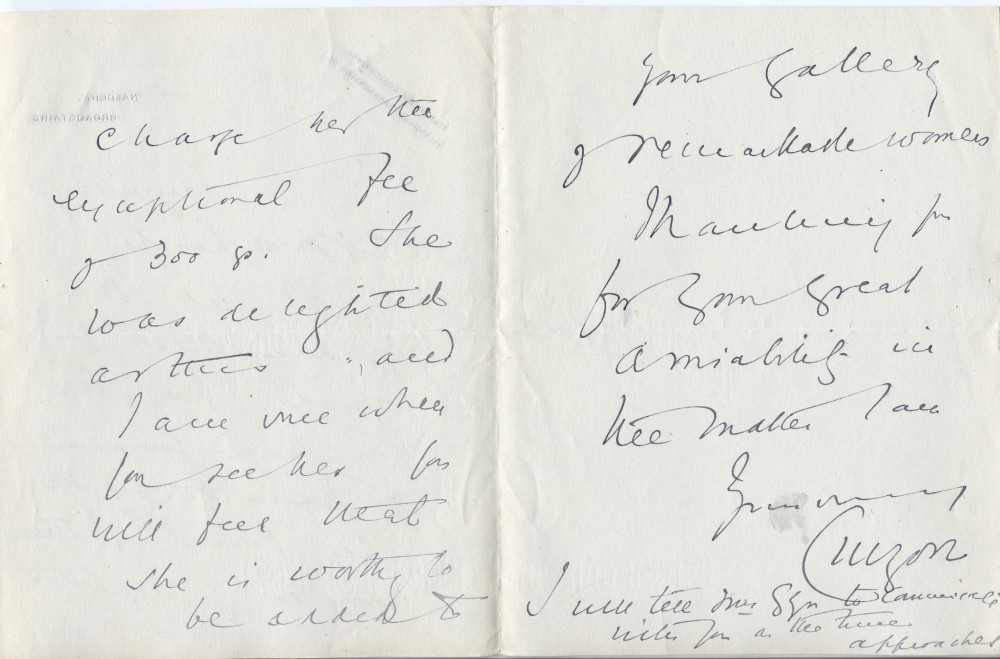 charge her the
exceptional fee
of 300 gs. She
was delighted
at this, and
I am sure when
you see her you
will feel that
she is worthy to
be added to
your gallery
of remarkable women
Thanking you
for your great
amiability in
the matter I am
Yours
Curzon
I will tell Mrs Glyn to communicate
with you as the time
approaches
NALDERA,
BROADSTAIRS.